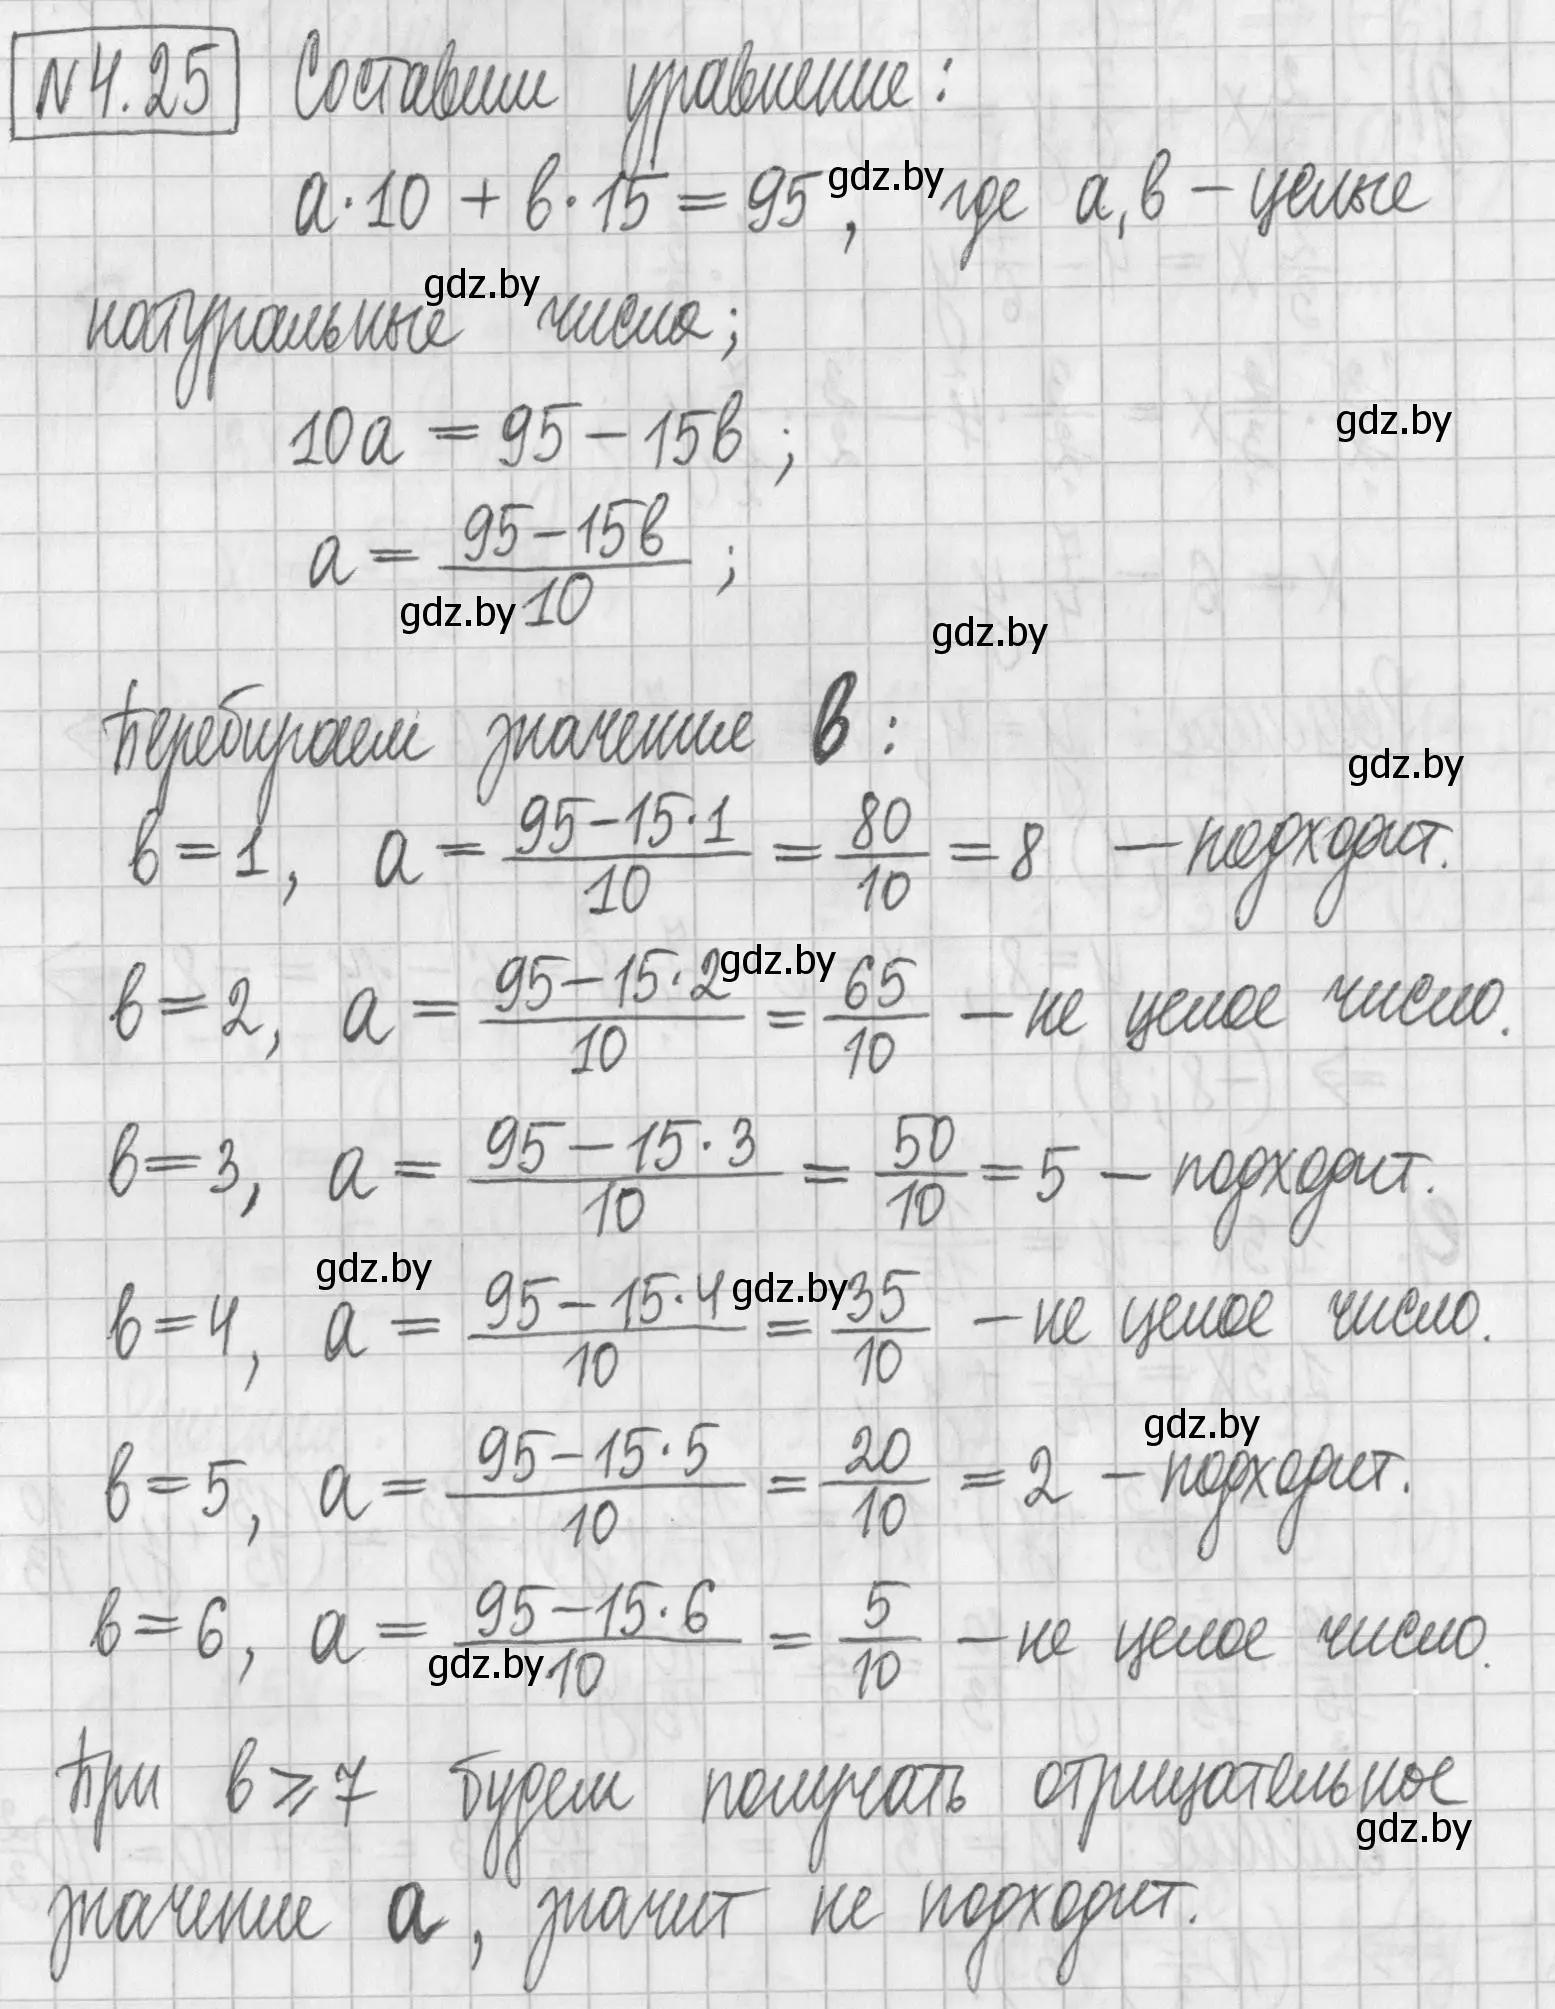 N 4.25 Составим уравнение:
a·10 + b·15 = 95, где a, b – целые
gdz.by
натуральные числа;
gdz.by
10a = 95 – 15b;
gdz.by
a = (95–15b)/10;
gdz.by
gdz.by
Перебираем значение b:
gdz.by
b=1, a = (95–15·1)/10 = 80/10 = 8 – подходит.
b=2, a = (95–15·2)/10 = 65/10 – не целое число.
gdz.by
b=3, a = (95–15·3)/10 = 50/10 = 5 – подходит.
gdz.by
b=4, a = (95–15·4)/10 = 35/10 – не целое число.
gdz.by
gdz.by
b=5, a = (95–15·5)/10 = 20/10 = 2 – подходит.
b=6, a = (95–15·6)/10 = 5/10 – не целое число.
gdz.by
При b ⩾ 7 будем получать отрицательное
gdz.by
значение a, значит не подходит.